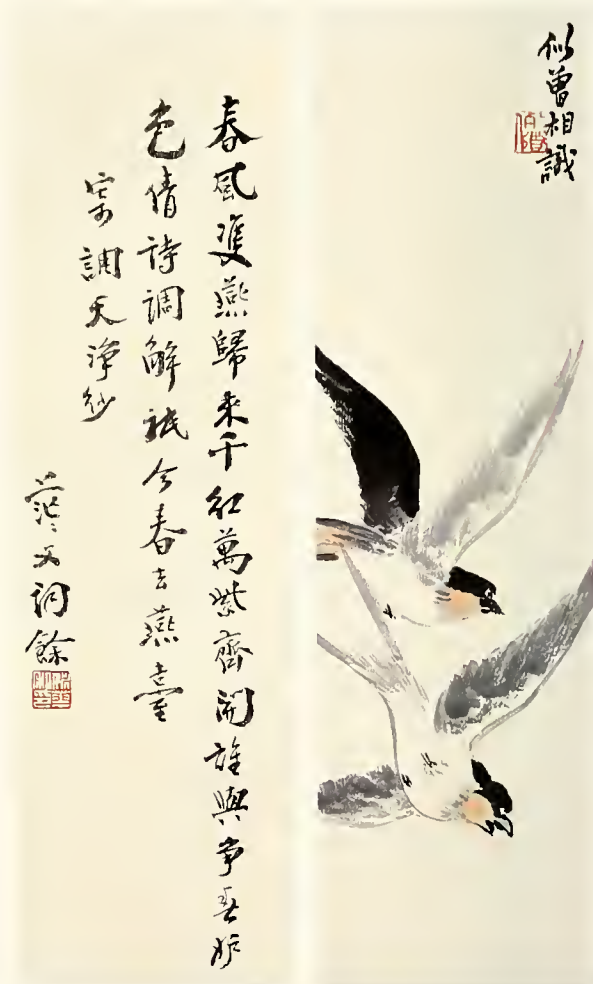 似曾相識
春風雙燕歸來千紅萬紫齊開誰與爭春妒
色倩詩調解祇今春去燕臺
寄調天淨紗
茫父詞餘